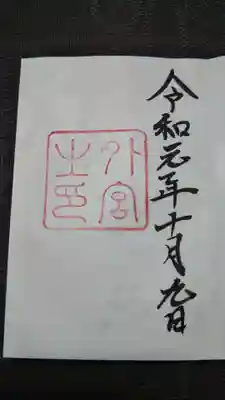 令和元年十月九日
外宮
之印